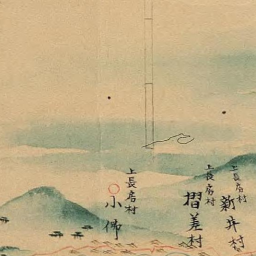 上長房村
新井村
上長房村
摺差村
上長房村
小佛